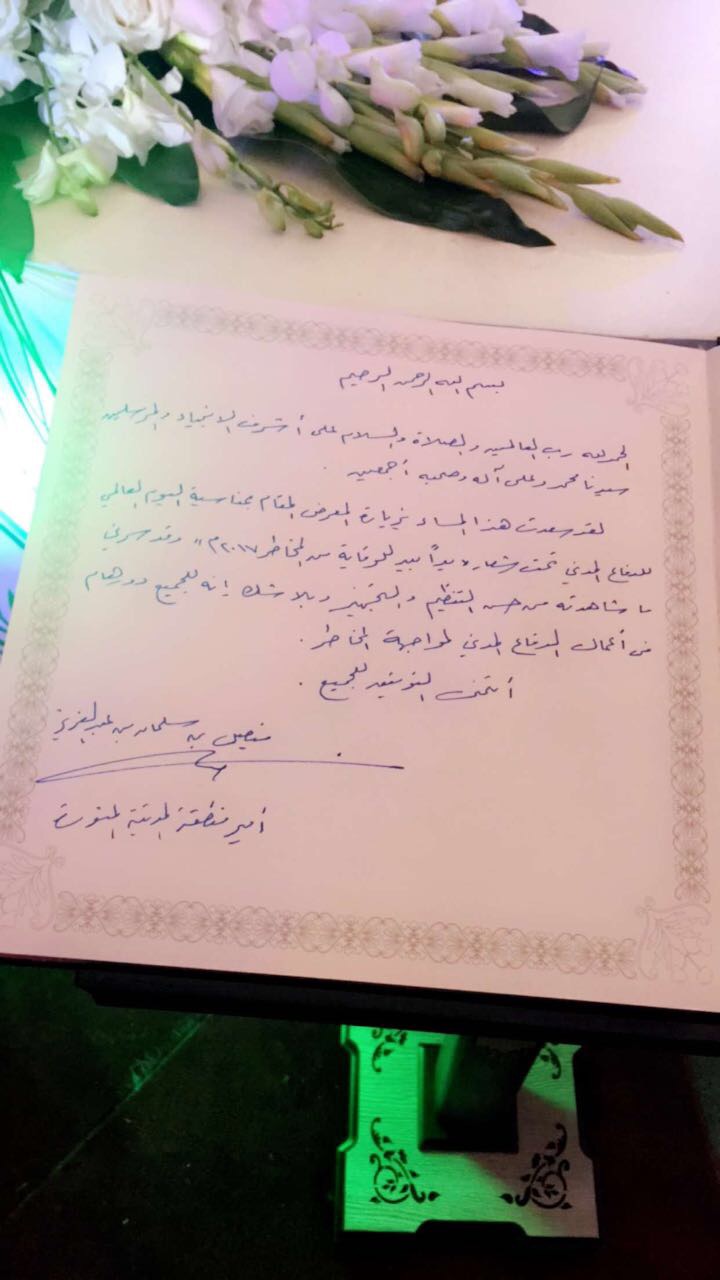 بسم الله الرحمن الرحيم
الحمد لله رب العالمين والصلاة والسلام على أشرف الانبياء والمرسلين
سيدنا محمد وعلى آله وصحبه أجمعين .
لقد سعدت هذا المساء بزيارة المعرض المقام بمناسبة اليوم العالمي
للدفاع المدني تحت شعار "يداً بيد للوقاية من المخاطر ٢٠١٧م" وقد سرني
ما شاهدته من حسن التنظيم والتجهيز وبلا شك إنه للجميع دور هام
في أعمال الدفاع المدني لمواجهة المخاطر .
أتمنى التوفيق للجميع .
فيصل بن سلمان بن عبدالعزيز
أمير منطقة المدينة المنورة